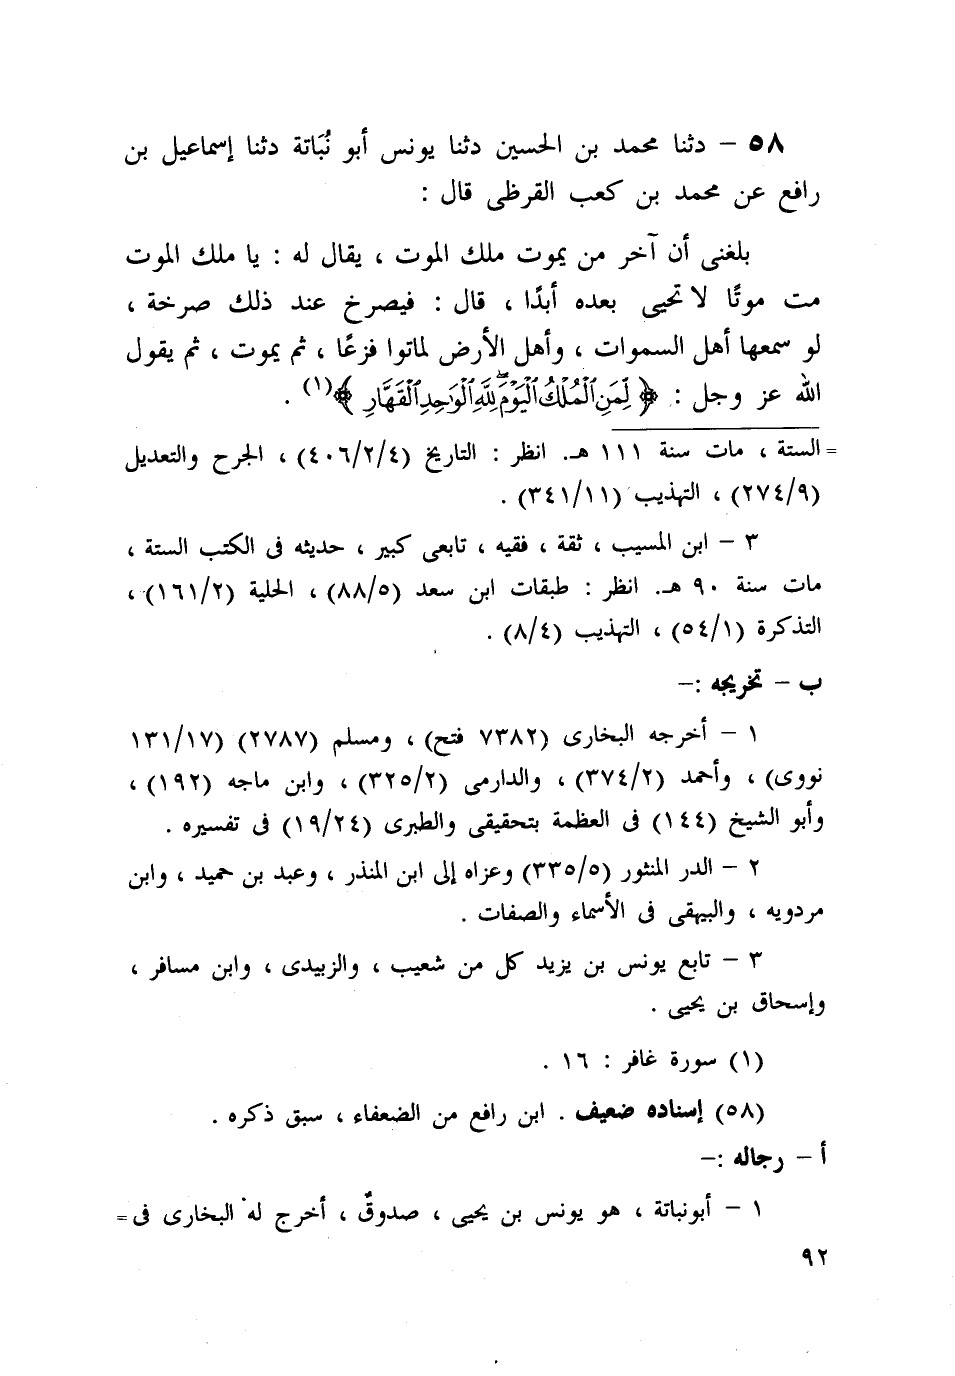 ٥٨ – دثنا محمد بن الحسين دثنا يونس أبو نُبَاتة دثنا إسماعيل بن
رافع عن محمد بن كعب القرظى قال :
بلغنى أن آخر من يموت ملك الموت ، يقال له : يا ملك الموت
مت موتًا لا تحيى بعده أبدًا ، قال : فيصرخ عند ذلك صرخة ،
لو سمعها أهل السموات ، وأهل الأرض لماتوا فزعًا ، ثم يموت ، ثم يقول
الله عز وجل : ﴿ لِّمَنِ ٱلْمُلْكُ ٱلْيَوْمَۖ لِلَّهِ ٱلْوَٰحِدِ ٱلْقَهَّارِ ﴾(١) .
= الستة ، مات سنة ١١١ هـ. انظر : التاريخ (٤٠٦/٢/٤) ، الجرح والتعديل
(٢٧٤/٩) ، التهذيب (٣٤١/١١) .
٣ – ابن المسيب ، ثقة ، فقيه ، تابعى كبير ، حديثه فى الكتب الستة ،
مات سنة ٩٠ هـ. انظر : طبقات ابن سعد (٨٨/٥) ، الحلية (١٦١/٢) ،
التذكرة (٥٤/١) ، التهذيب (٨/٤) .
ب – تخريجه :–
١ – أخرجه البخارى (٧٣٨٢ فتح) ، ومسلم (٢٧٨٧) (١٣١/١٧
نووى) ، وأحمد (٣٧٤/٢) ، والدارمى (٣٢٥/٢) ، وابن ماجه (١٩٢) ،
وأبو الشيخ (١٤٤) فى العظمة بتحقيقى والطبرى (١٩/٢٤) فى تفسيره .
٢ – الدر المنثور (٣٣٥/٥) وعزاه إلى ابن المنذر ، وعبد بن حميد ، وابن
مردويه ، والبيهقى فى الأسماء والصفات .
٣ – تابع يونس بن يزيد كل من شعيب ، والزبيدى ، وابن مسافر ،
وإسحاق بن يحيى .
(١) سورة غافر : ١٦ .
(٥٨) إسناده ضعيف . ابن رافع من الضعفاء ، سبق ذكره .
أ – رجاله :–
١ – أبونباتة ، هو يونس بن يحيى ، صدوقٌ ، أخرج له البخارى فى =
٩٢